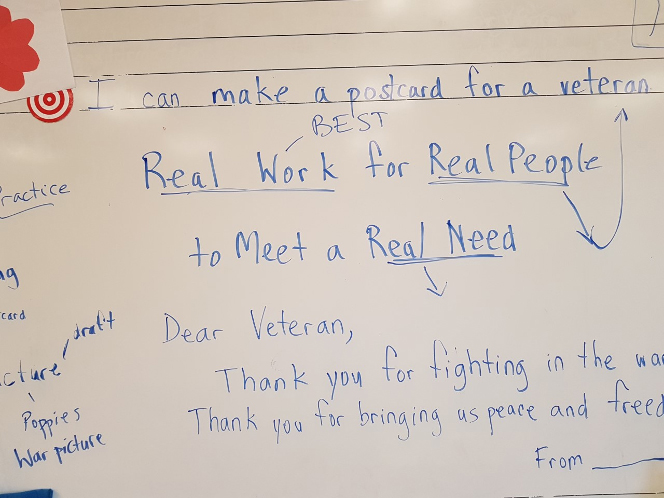 I can make a postcard for a veteran
BEST
Real Work for Real People
to Meet a Real Need
Dear Veteran,
Thank you for fighting in the war
Thank you for bringing us peace and freed
From
ractice
ng
card
draft
cture
Poppies
War picture